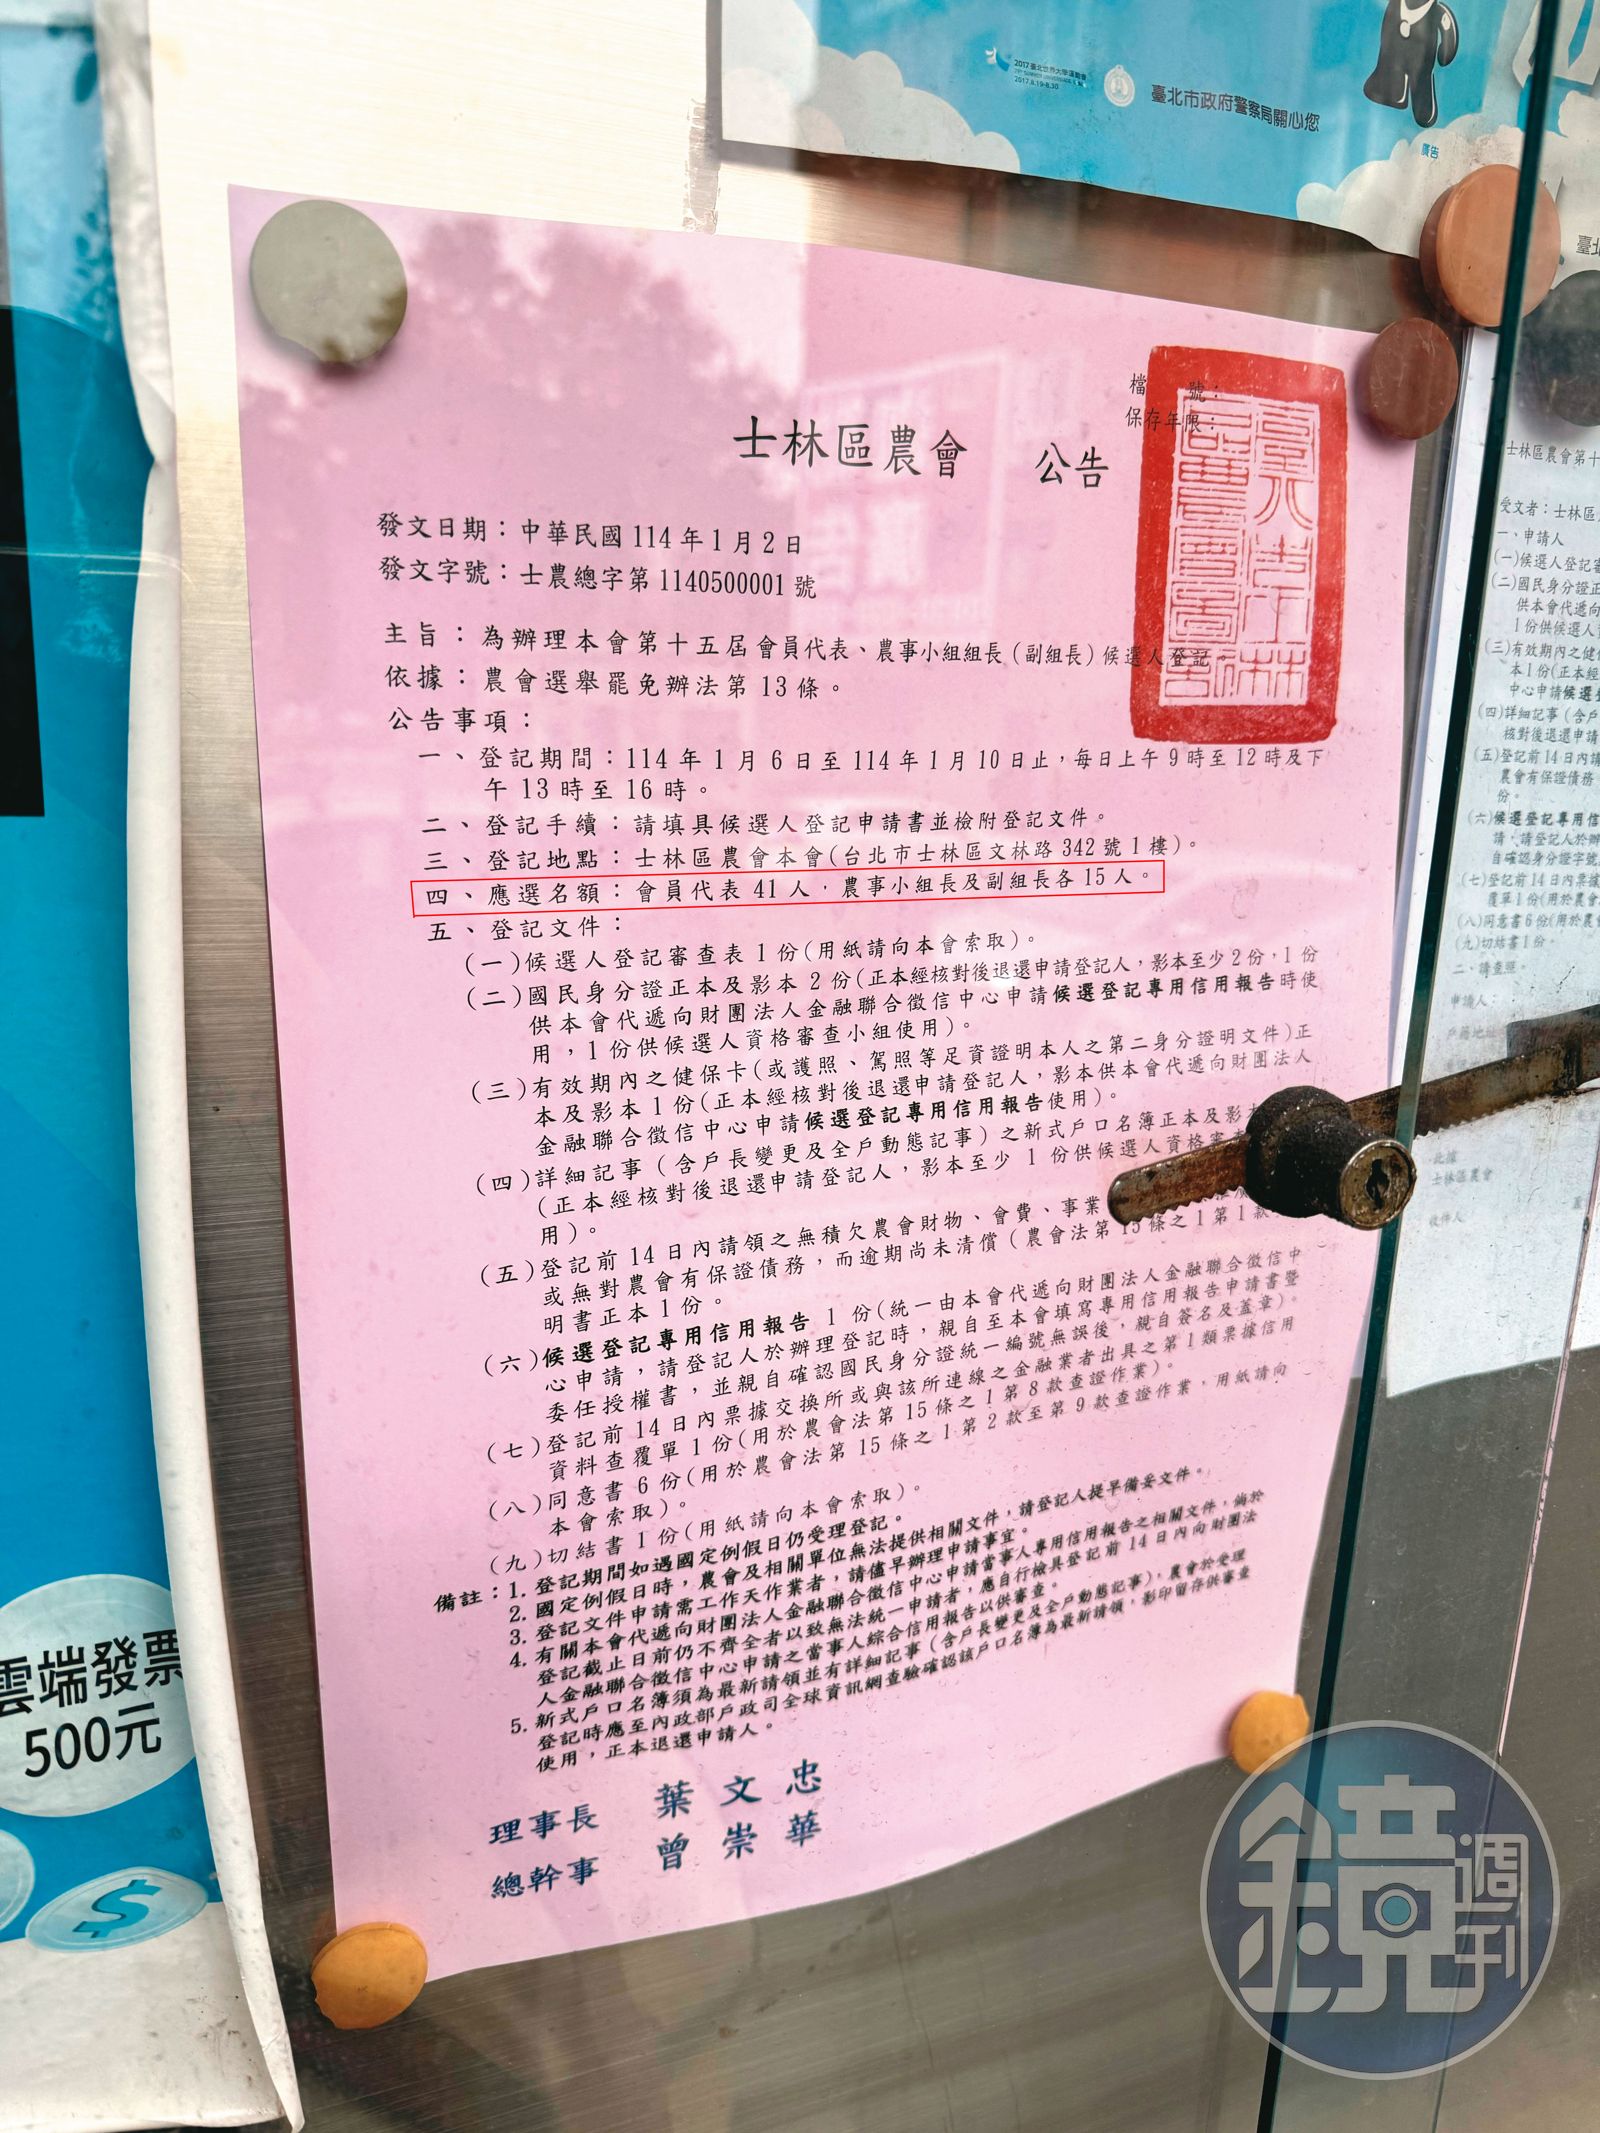 2017臺北世界大學運動會
2017.8.19-8.30
臺北市政府警察局關心您
廣告
臺北
檔 號：
保存年限：
士林區農會 公告
發文日期：中華民國114年1月2日
發文字號：士農總字第1140500001號
主旨：為辦理本會第十五屆會員代表、農事小組組長（副組長）候選人登記
依據：農會選舉罷免辦法第13條。
公告事項：
一、登記期間：114年1月6日至114年1月10日止，每日上午9時至12時及下
午13時至16時。
二、登記手續：請填具候選人登記申請書並檢附登記文件。
三、登記地點：士林區農會本會(台北市士林區文林路342號1樓)。
四、應選名額：會員代表41人，農事小組長及副組長各15人。
五、登記文件：
(一)候選人登記審查表1份(用紙請向本會索取)。
(二)國民身分證正本及影本2份(正本經核對後退還申請登記人，影本至少2份，1份
供本會代遞向財團法人金融聯合徵信中心申請候選登記專用信用報告時使
用，1份供候選人資格審查小組使用)。
(三)有效期內之健保卡(或護照、駕照等足資證明本人之第二身分證明文件)正
本及影本1份(正本經核對後退還申請登記人，影本供本會代遞向財團法人
金融聯合徵信中心申請候選登記專用信用報告使用)。
(四)詳細記事（含戶長變更及全戶動態記事）之新式戶口名簿正本及影本
(正本經核對後退還申請登記人，影本至少1份供候選人資格審
用)。
(五)登記前14日內請領之無積欠農會財物、會費、事業
或無對農會有保證債務，而逾期尚未清償（農會法第15條之1第1款
明書正本1份。
(六)候選登記專用信用報告1份(統一由本會代遞向財團法人金融聯合徵信中
心申請，請登記人於辦理登記時，親自至本會填寫專用信用報告申請書暨
委任授權書，並親自確認國民身分證統一編號無誤後，親自簽名及蓋章)。
(七)登記前14日內票據交換所或與該所連線之金融業者出具之第1類票據信用
資料查覆單1份(用於農會法第15條之1第8款查證作業)。
(八)同意書6份(用於農會法第15條之1第2款至第9款查證作業，用紙請向
本會索取)。
(九)切結書1份(用紙請向本會索取)。
備註：1.登記期間如遇國定例假日仍受理登記。
2.國定例假日時，農會及相關單位無法提供相關文件，請登記人提早備妥文件。
3.登記文件申請需工作天作業者，請儘早辦理申請事宜。
4.有關本會代遞向財團法人金融聯合徵信中心申請當事人專用信用報告之相關文件，倘於
登記截止日前仍不齊全者以致無法統一申請者，應自行檢具登記前14日內向財團法
人金融聯合徵信中心申請之當事人綜合信用報告以供審查。
5.新式戶口名簿須為最新請領並有詳細記事（含戶長變更及全戶動態記事），農會於受理
登記時應至內政部戶政司全球資訊網查驗確認該戶口名簿為最新請領，影印留存供審查
使用，正本退還申請人。
理事長 葉文忠
總幹事 曾崇華
雲端發票
500元
$
士林區農會第十
受文者：士林區
一、申請人
(一)候選人登記審
(二)國民身分證正
供本會代遞向
1份供候選人
(三)有效期內之健
本1份(正本經
中心申請候選登
(四)詳細記事（含戶
核對後退還申請
(五)登記前14日內請
農會有保證債務，
份。
(六)候選登記專用信
請，請登記人於辦
自確認身分證字號
(七)登記前14日內票據
覆單1份(用於農會
(八)同意書6份(用於農會
(九)切結書1份。
二、請查照。
申請人：
戶籍地址
此據
士林區農會
收件人
鏡週刊